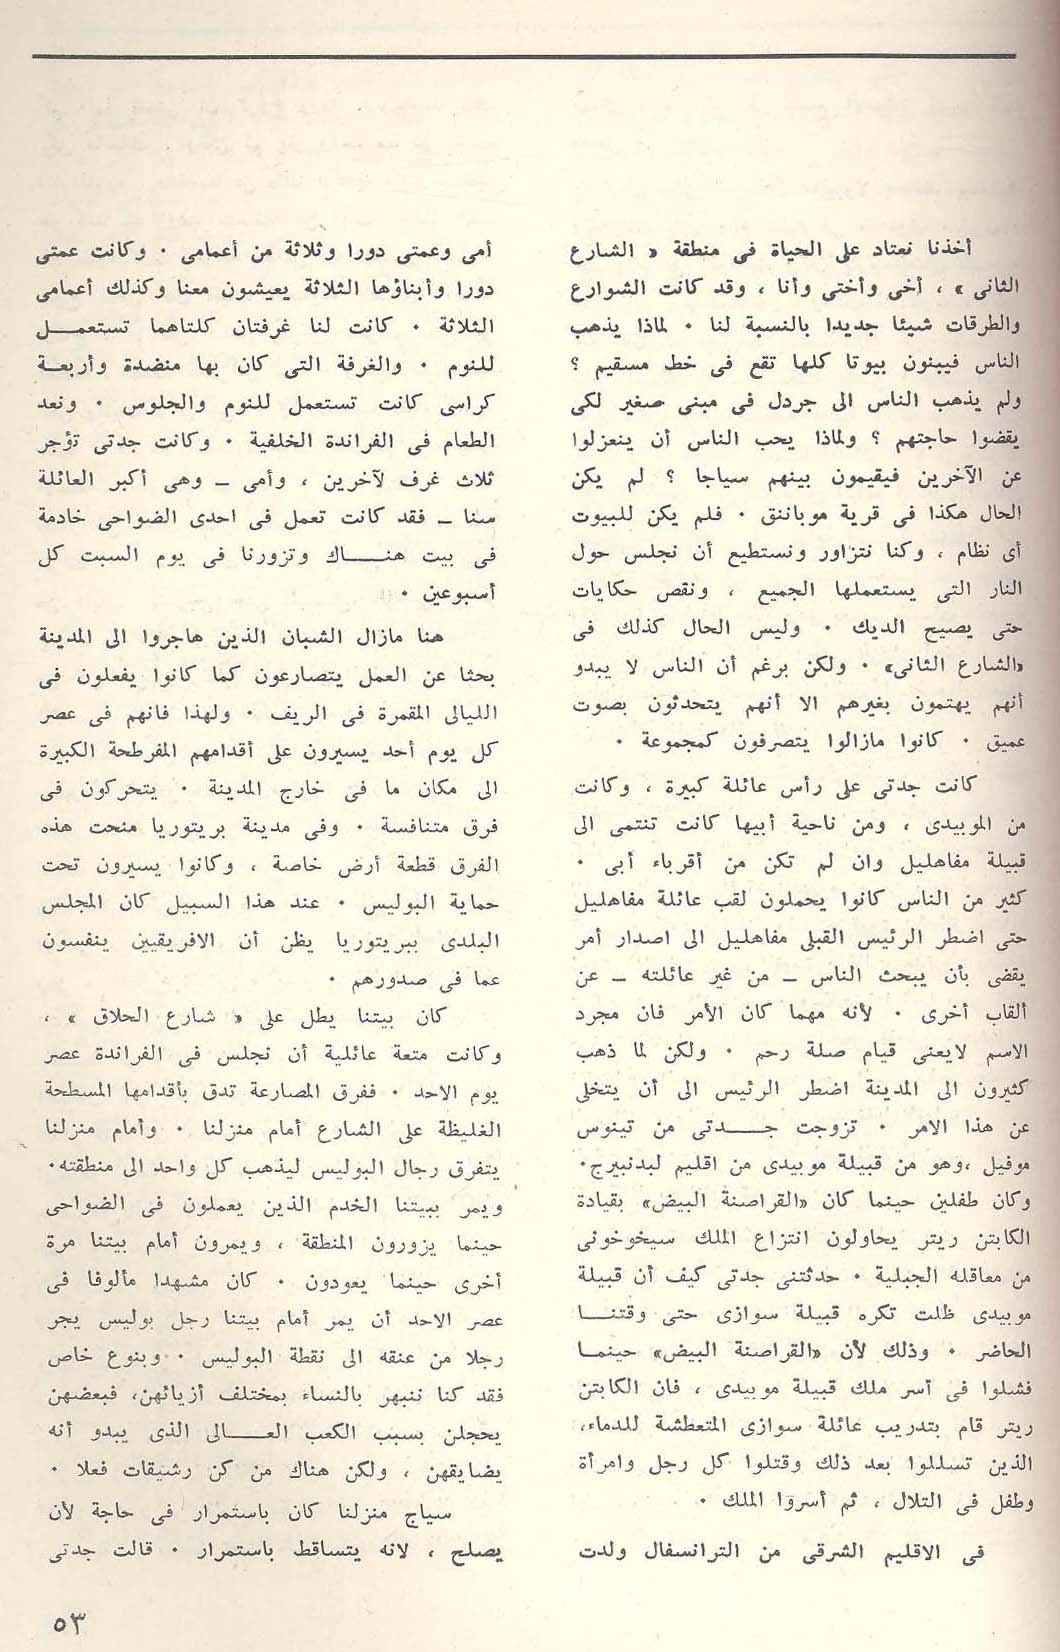 أخذنا نعتاد على الحياة فى منطقة « الشارع
الثانى » ، أخى وأختى وأنا ، وقد كانت الشوارع
والطرقات شيئا جديدا بالنسبة لنا ٠ لماذا يذهب
الناس فيبنون بيوتا كلها تقع فى خط مسقيم ؟
ولم يذهب الناس الى جردل فى مبنى صغير لكى
يقضوا حاجتهم ؟ ولماذا يحب الناس أن ينعزلوا
عن الآخرين فيقيمون بينهم سياجا ؟ لم يكن
الحال هكذا فى قرية موباننق ٠ فلم يكن للبيوت
أى نظام ، وكنا نتزاور ونستطيع أن نجلس حول
النار التى يستعملها الجميع ، ونقص حكايات
حتى يصيح الديك ٠ وليس الحال كذلك فى
«الشارع الثانى» ٠ ولكن برغم أن الناس لا يبدو
أنهم يهتمون بغيرهم الا أنهم يتحدثون بصوت
عميق ٠ كانوا مازالوا يتصرفون كمجموعة ٠
كانت جدتى على رأس عائلة كبيرة ، وكانت
من الموبيدى ، ومن ناحية أبيها كانت تنتمى الى
قبيلة مفاهليل وان لم تكن من أقرباء أبى ٠
كثير من الناس كانوا يحملون لقب عائلة مفاهليل
حتى اضطر الرئيس القبلى مفاهليل الى اصدار أمر
يقضى بأن يبحث الناس ــ من غير عائلته ــ عن
ألقاب أخرى ٠ لأنه مهما كان الأمر فان مجرد
الاسم لايعنى قيام صلة رحم ٠ ولكن لما ذهب
كثيرون الى المدينة اضطر الرئيس الى أن يتخلى
عن هذا الامر ٠ تزوجت جـــدتى من تينوس
موفيل ،وهو من قبيلة موبيدى من اقليم لبدنبيرج٠
وكان طفلين حينما كان «القراصنة البيض» بقيادة
الكابتن ريتر يحاولون انتزاع الملك سيخوخونى
من معاقله الجبلية ٠ حدثتنى جدتى كيف أن قبيلة
موبيدى ظلت تكره قبيلة سوازى حتى وقتنـــا
الحاضر ٠ وذلك لأن «القراصنة البيض» حينمــا
فشلوا فى أسر ملك قبيلة موبيدى ، فان الكابتن
ريتر قام بتدريب عائلة سوازى المتعطشة للدماء،
الذين تسللوا بعد ذلك وقتلوا كل رجل وامرأة
وطفل فى التلال ، ثم أسروا الملك ٠
فى الاقليم الشرقى من الترانسفال ولدت
أمى وعمتى دورا وثلاثة من أعمامى ٠ وكانت عمتى
دورا وأبناؤها الثلاثة يعيشون معنا وكذلك أعمامى
الثلاثة ٠ كانت لنا غرفتان كلتاهما تستعمـــل
للنوم ٠ والغرفة التى كان بها منضدة وأربعــة
كراسى كانت تستعمل للنوم والجلوس ٠ ونعد
الطعام فى الفراندة الخلفية ٠ وكانت جدتى تؤجر
ثلاث غرف لآخرين ، وأمى ــ وهى أكبر العائلة
سنا ــ فقد كانت تعمل فى احدى الضواحى خادمة
فى بيت هنـــاك وتزورنا فى يوم السبت كل
أسبوعين ٠
هنا مازال الشبان الذين هاجروا الى المدينة
بحثا عن العمل يتصارعون كما كانوا يفعلون فى
الليالى المقمرة فى الريف ٠ ولهذا فانهم فى عصر
كل يوم أحد يسيرون على أقدامهم المفرطحة الكبيرة
الى مكان ما فى خارج المدينة ٠ يتحركون فى
فرق متنافسة ٠ وفى مدينة بريتوريا منحت هذه
الفرق قطعة أرض خاصة ، وكانوا يسيرون تحت
حماية البوليس ٠ عند هذا السبيل كان المجلس
البلدى ببريتوريا يظن أن الافريقيين ينفسون
عما فى صدورهم ٠
كان بيتنا يطل على « شارع الحلاق » ،
وكانت متعة عائلية أن نجلس فى الفراندة عصر
يوم الاحد ٠ ففرق المصارعة تدق بأقدامها المسطحة
الغليظة على الشارع أمام منزلنا ٠ وأمام منزلنا
يتفرق رجال البوليس ليذهب كل واحد الى منطقته٠
ويمر ببيتنا الخدم الذين يعملون فى الضواحى
حينما يزورون المنطقة ، ويمرون أمام بيتنا مرة
أخرى حينما يعودون ٠ كان مشهدا مألوفا فى
عصر الاحد أن يمر أمام بيتنا رجل بوليس يجر
رجلا من عنقه الى نقطة البوليس ٠ وبنوع خاص
فقد كنا ننبهر بالنساء بمختلف أزيائهن، فبعضهن
يحجلن بسبب الكعب العـــالى الذى يبدو أنه
يضايقهن ، ولكن هناك من كن رشيقات فعلا ٠
سياج منزلنا كان باستمرار فى حاجة لأن
يصلح ، لانه يتساقط باستمرار ٠ قالت جدتى
٥٣